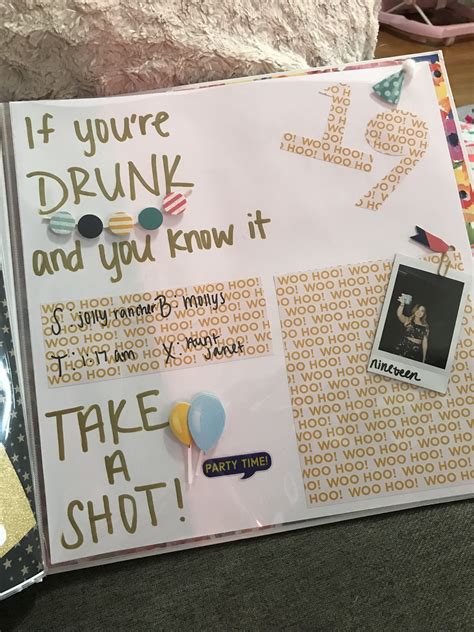 If you're
DRUNK
and you know it
19
WOO HOO! WOO HOO! WOO HOO!
S: jolly rancher B: mollys
T: 1:17 am X: Aunt
Janet
TAKE
A
SHOT!
PARTY TIME!
WOO HOO! WOO HOO! WOO HOO!
nineteen